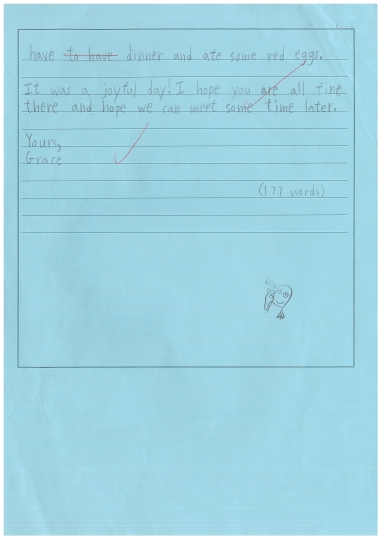 have to have dinner and ate some red eggs.
It was a joyful day! I hope you are all fine
there and hope we can meet some time later.
Yours,
Grace
(177 words)